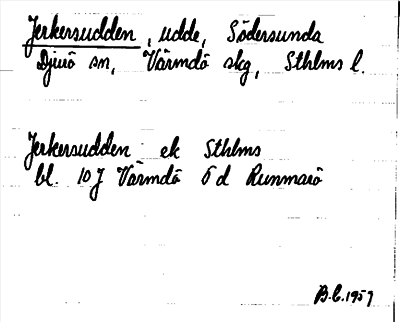 Jerkersudden, udde, Södersunda
Djurö sn, Värmdö skg, Sthlms l.
Jerkersudden ek Sthlms
bl. 10 J Värmdö 6 d Runmarö
B.C. 1959